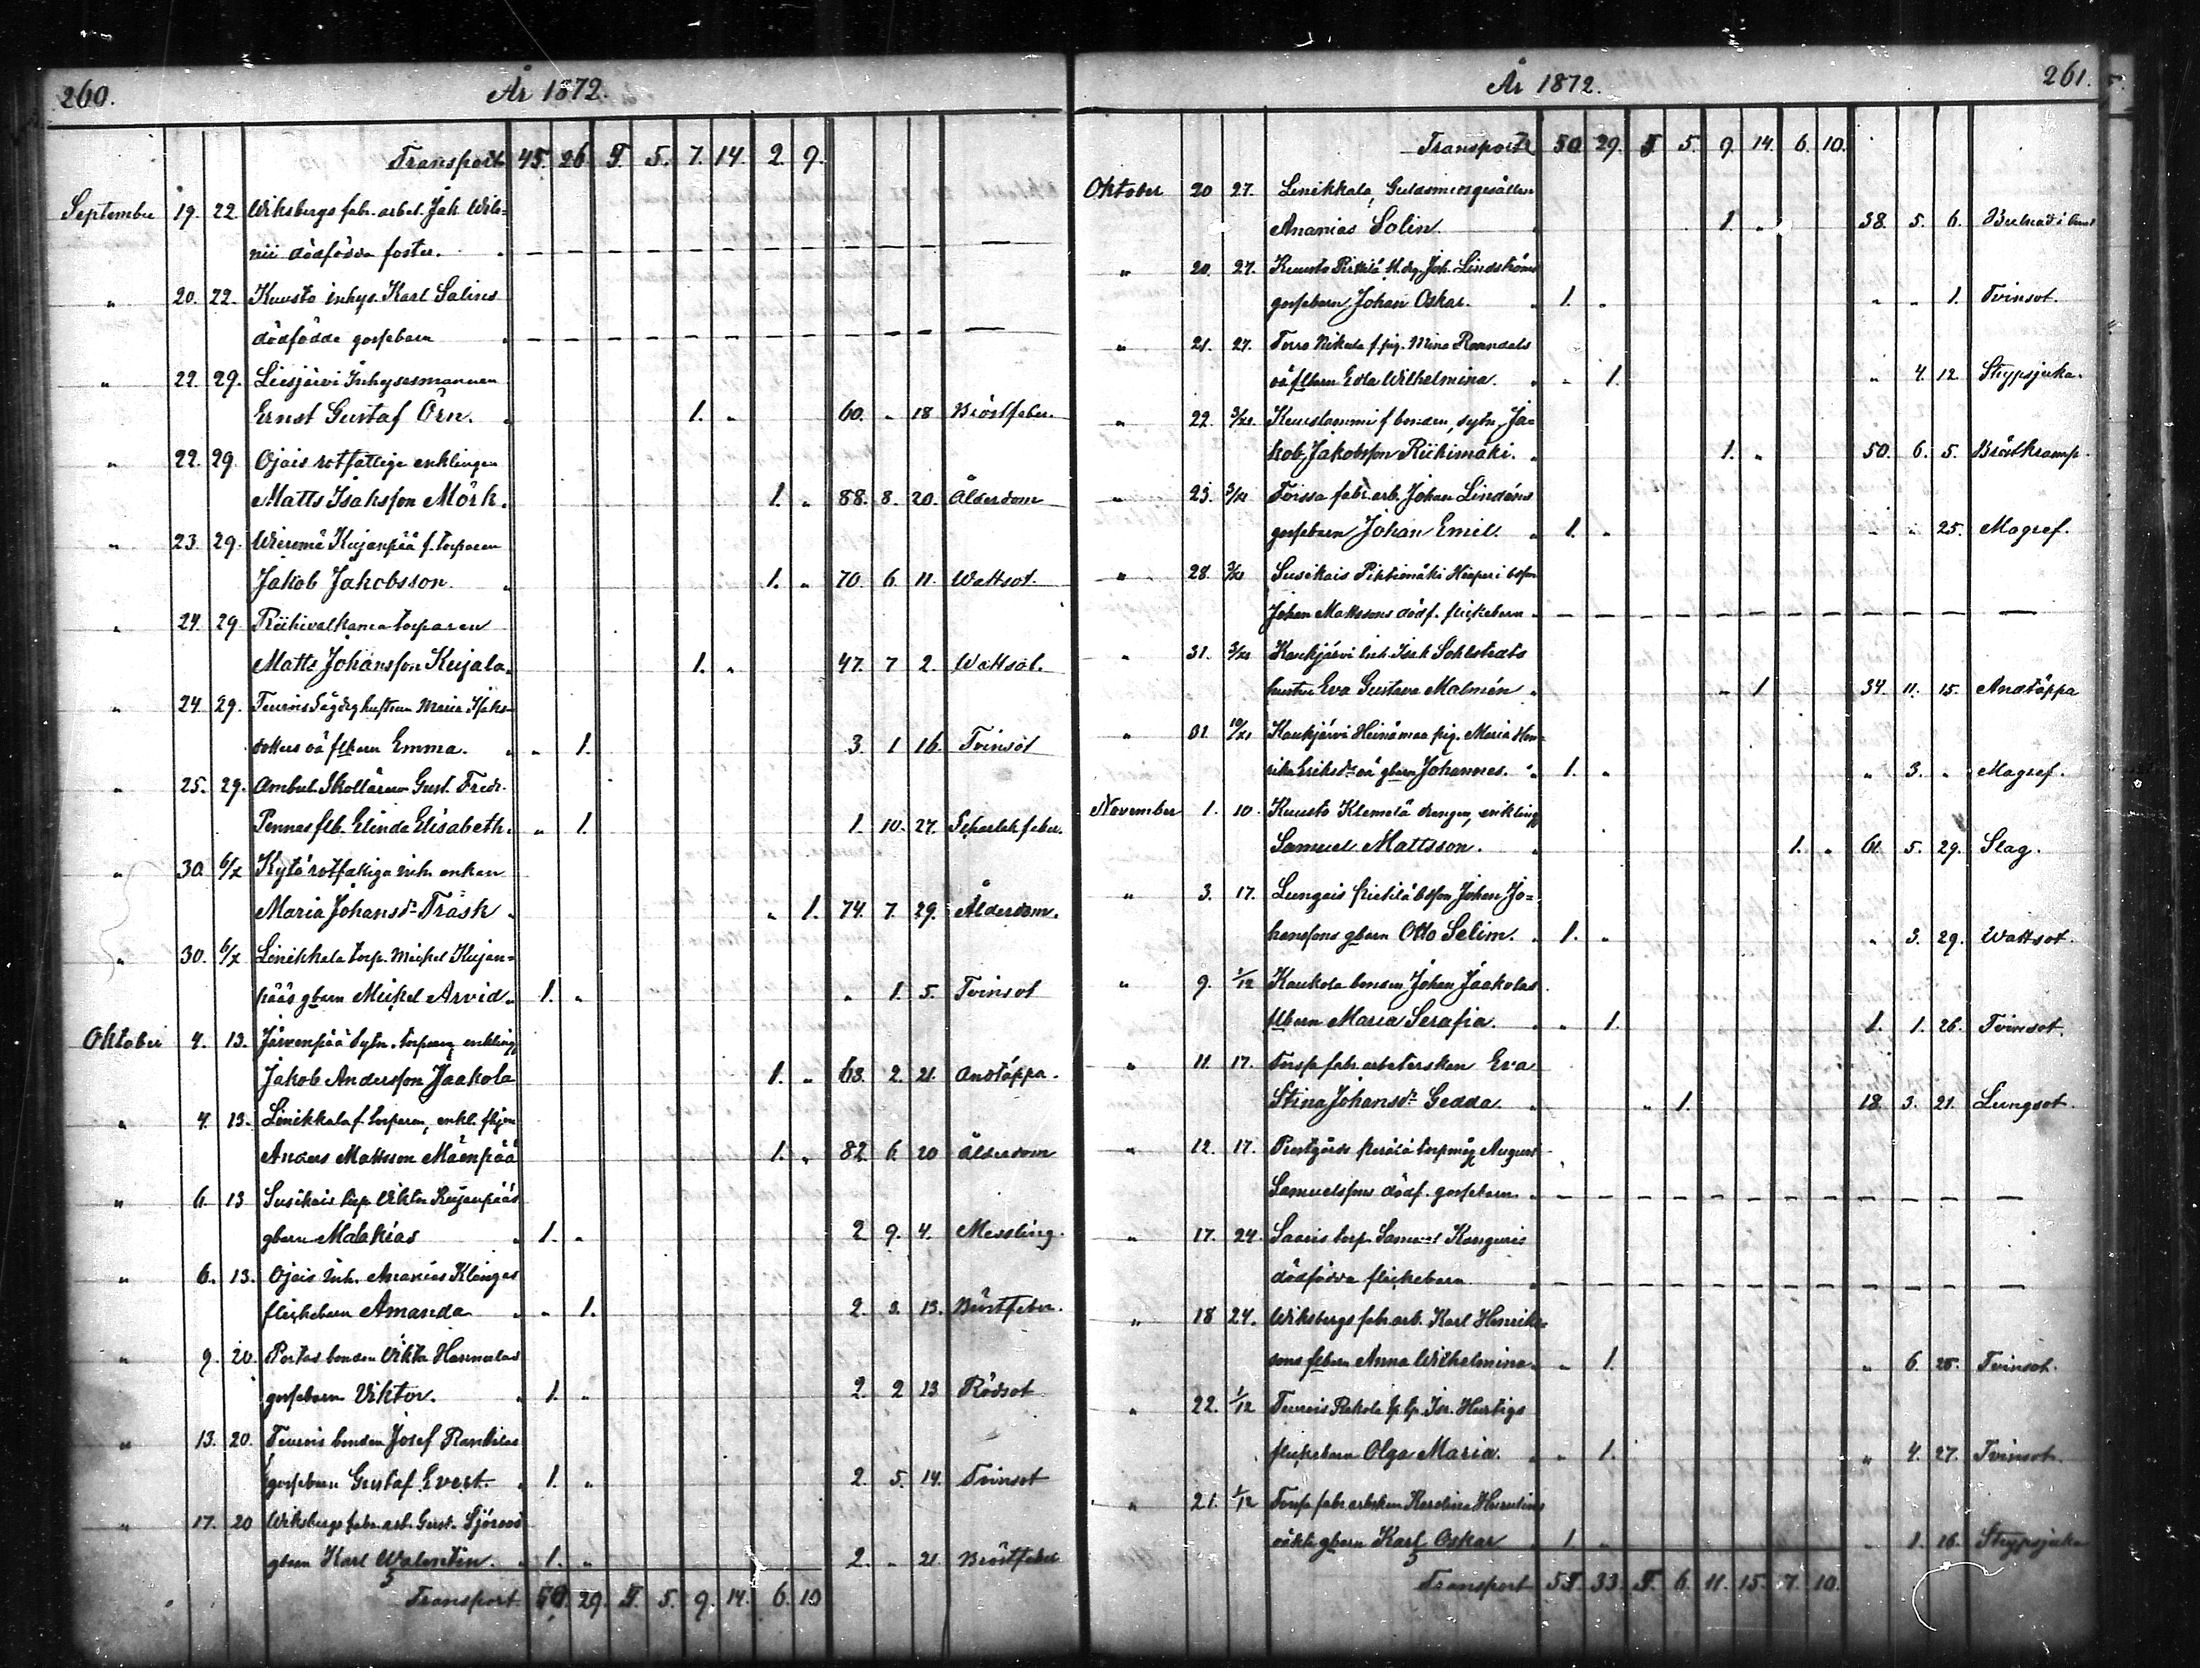 260.
År 1872.
Transport 45. 26. 5. 5. 7. 14. 2. 9.
September 19. 22. Wiksbergs fabr. arbet. Jak. Wile-
nii dödfödda foster. — — — — — — — — — — — —
" 20. 22. Kuusto inhys. Karl Salins
dödfödde gossebarn — — — — — — — — — — — —
" 22. 29. Liesjärvi Inhysesmannen
Ernst Gustaf Örn. 1. " 60. " 18 Bröstfeber.
" 22. 29. Ojais rotfattige enklingen
Matts Isaksson Mörk. 1. " 88. 8. 20. Ålderdom
" 23. 29. Wieremä Kujanpää f. torparen
Jakob Jakobsson. 1. " 70. 6. 11. Wattsot.
" 24. 29. Riihivalkama torparen
Matts Johansson Kujala. 1. " 47. 7 2. Wattsot.
" 24. 29. hustrun Maria Isaks-
dotters oä flbarn Emma. " 1. 3. 1 16. Tvinsot
" 25. 29. Ambul. Skollärarn Gust. Fredr.
Pennas flb. Elinda Elisabeth. " 1. 1. 10. 27. Scharlak feber.
" 30. 6/X Kytö rotfattiga inh. enkan
Maria Johansdr Träsk " 1. 74. 7. 29. Ålderdom.
" 30. 6/X Linikkala torp. Mickel Kujan-
pääs gbarn Mickel Arvid. 1. " " 1. 5. Tvinsot
Oktober 4. 13. Järvenpää sytn. torparen, enkling
Jakob Andersson Jaakola 1. " 63. 2. 21. Andtäppa.
" 4. 13. Linikkala f. torparen, enkl.
Anders Mattsson Mäenpää 1. " 82. 6. 20 Ålderdom
" 6. 13 Susikais torp. Viktor Kujanpääs
gbarn Malakias 1. " 2 9. 4. Messling.
" 6. 13. Ojais Inh. Ananias Klinges
flickebarn Amanda " 1. 2. 3. 13. Bröstfeber.
" 9. 20. Portas bonden Viktor Hannulas
gossebarn Viktor. 1. " 2. 2 13 Rödsot
" 13. 20. Teuois bonden Josef Rantilas
gossebarn Gustaf Evert. 1. " 2. 5. 14. Tvinsot
" 17. 20 Wiksbergs fabr. arb. Gust. Sjöroos
gbarn Karl Walentin. 1. " 2. " 21. Bröstfeber
Transport 50. 29. 5. 5. 9. 14. 6. 10
År 1872.
261.
Transport 50 29. 5 5. 9. 14. 6. 10.
Oktober 20 27. Linikkala, Guldsmedsgesällen
Ananias Solin 1. " 38. 5. 6.
" 20. 27. Kuusto Pietilä Joh. Lindströms
gossebarn Johan Oskar. 1. " " " 1. Tvinsot.
" 21. 27. Torro Nikula f. pig. Mina Rosendals
oä flbarn Edla Wilhelmina. " 1. " 4. 12 Strypsjuka.
" 22. 3/XI. Kuuslammi f bonden, sytn. Ja-
kob Jakobsson Riihimäki. 1. " 50. 6. 5. Bröstkramp.
" 23. 3/XI Forssa fabr. arb. Johan Lindéns
gossebarn Johan Emil. 1. " " " 25. Magref.
" 28. 3/XI Susikais
Johan Mattssons dödf. flickebarn — — — — — — — — — — — —
" 31. 3/XI Kaukjärvi Inh. Isak Sohlstedts
hustru Eva Gustava Malmén " 1 34. 11. 15. Andtäppa
" 31 10/XI Kaukjärvi Heinämaa pig. Maria Hen-
rika Eriksdr oä gbarn Johannes. 1. " " 3. " Magref.
November 1. 10. Kuusto Klemelä drengen, enkling
Samuel Mattsson. 1. " 61. 5. 29. Slag.
" 3. 17. Lungais Pietilä bdson Johan Jo-
hanssons gbarn Otto Selim. 1. " " 3. 29. Wattsot.
" 9. 1/12 Kaukola bonden Johan Jaakolas
flbarn Maria Serafia. " 1. 1. 1. 26. Tvinsot.
" 11. 17. Forssa fabr. arbeterskan Eva
Stina Johansdr Gedda. " 1. 18. 3. 21. Lungsot.
" 12. 17. Prestgårds August
Samuelssons dödf. gossebarn — — — — — — — — — — — —
" 17. 24. Saaris torp. Samuel Kanguris
dödfödda flickebarn — — — — — — — — — — — —
" 18 24. Wiksbergs fabr. arb. Karl Henriks-
sons flbarn Anna Wilhelmina. " 1. " 6. 25. Tvinsot.
" 22. 1/12 Teurois Rekola Hertigs
flickebarn Olga Maria. " 1. " 4. 27. Tvinsot.
" 21. 1/12 Forssa fabr. arbeterskan Karolina
oäkta gbarn Karl Oskar 1. " " 1. 16. Strypsjuka
Transport 55. 33. 5. 6. 11. 15. 7. 10.